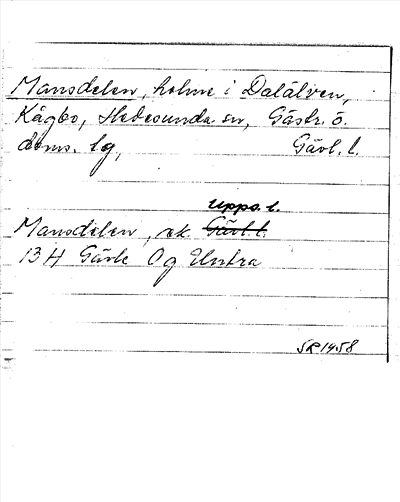 Mansdelen, holme i Dalälven,
Kågbo, Hedesunda sn, Gästr. ö.
doms. lg, Gävl. l.
Upps. l.
Mansdelen, ek. Gävl. l.
13 H Gävle Og
SR 1458